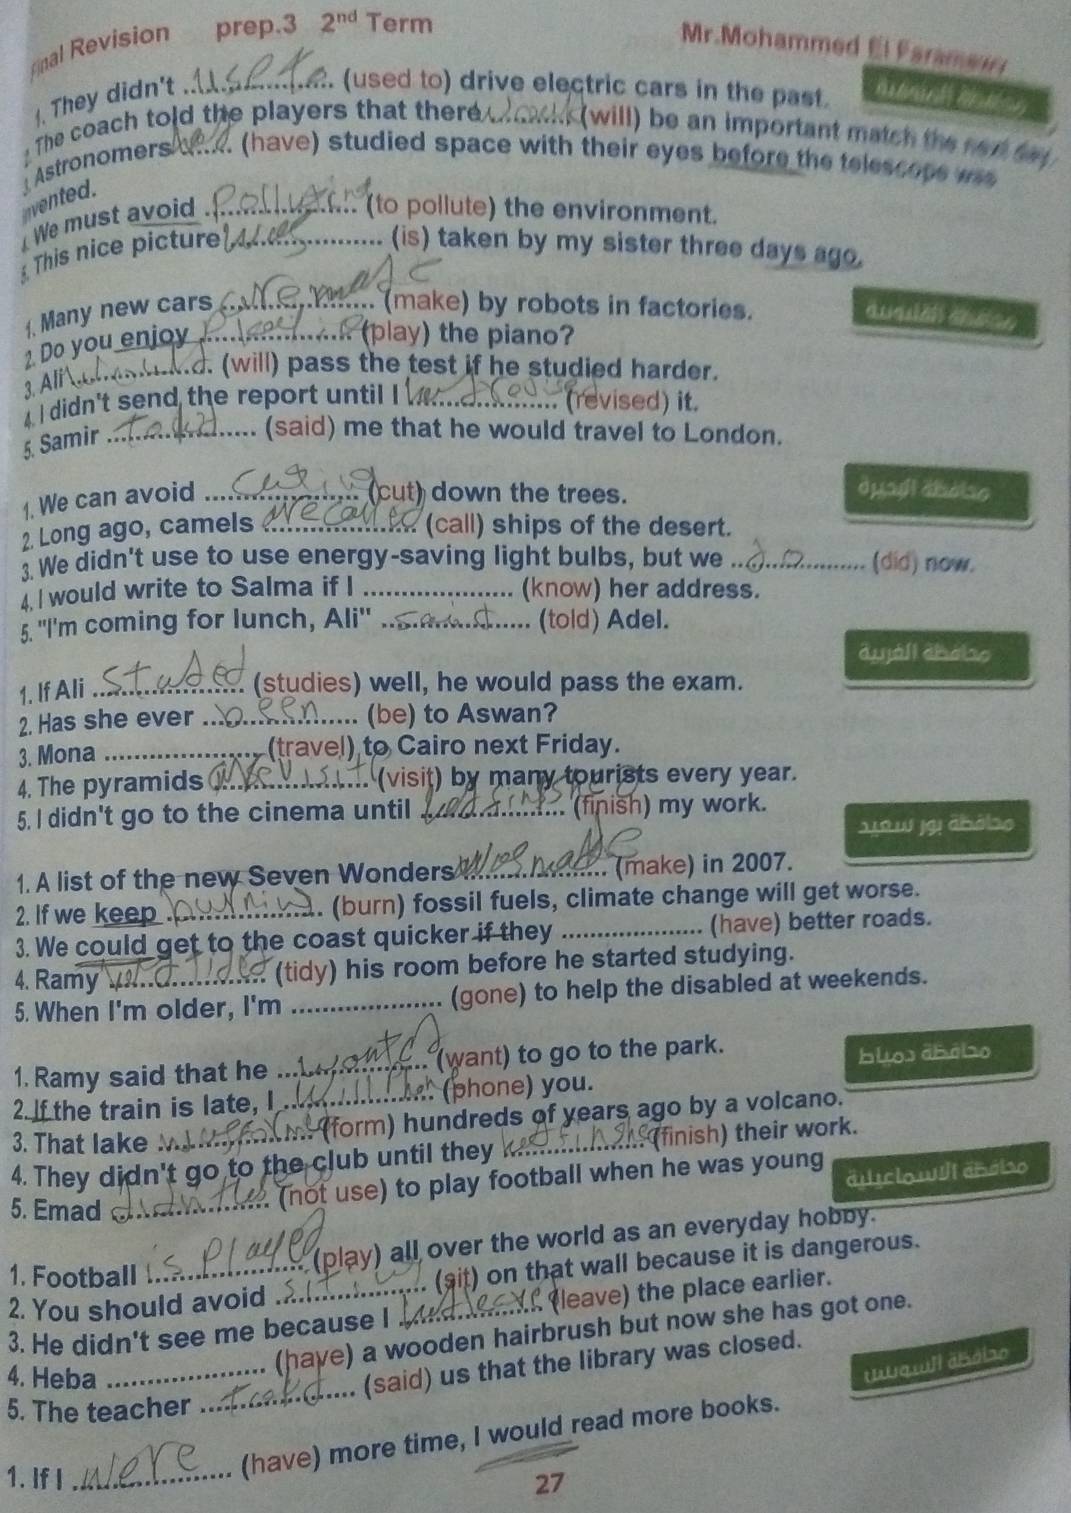 Final Revision prep.3 2nd Term Mr.Mohammed El Faramawy
محافظة
1. They didn't use to (used to) drive electric cars in the past.
2. The coach told the players that there would (will) be an important match the next day.
3. Astronomers had (have) studied space with their eyes before the telescope was
invented.
4. We must avoid polluting (to pollute) the environment.
5. This nice picture was (is) taken by my sister three days ago.
محافظة القليوبية
1. Many new cars are made (make) by robots in factories.
2. Do you enjoy (play) the piano?
3. Ali would (will) pass the test if he studied harder.
4. I didn't send the report until I had revised (revised) it.
5. Samir told (said) me that he would travel to London.
محافظة البحيرة
1. We can avoid cuting (cut) down the trees.
2. Long ago, camels were called (call) ships of the desert.
3. We didn't use to use energy-saving light bulbs, but we do ............ (did) now.
4. I would write to Salma if I .................... (know) her address.
5. "I'm coming for lunch, Ali" said (told) Adel.
محافظة الغربية
1. If Ali studed (studies) well, he would pass the exam.
2. Has she ever been (be) to Aswan?
3. Mona .................... (travel) to Cairo next Friday.
4. The pyramids are visit (visit) by many tourists every year.
5. I didn't go to the cinema until had finshed (finish) my work.
محافظة بور سعيد
1. A list of the new Seven Wonders was made (make) in 2007.
2. If we keep burnin (burn) fossil fuels, climate change will get worse.
3. We could get to the coast quicker if they .................... (have) better roads.
4. Ramy had tided (tidy) his room before he started studying.
5. When I'm older, I'm .................... (gone) to help the disabled at weekends.
محافظة دمياط
1. Ramy said that he wanted (want) to go to the park.
2. If the train is late, I will phon (phone) you.
3. That lake was formed (form) hundreds of years ago by a volcano.
4. They didn't go to the club until they had finshed (finish) their work.
5. Emad didn't use (not use) to play football when he was young
محافظة الاسماعيلية
1. Football is played (play) all over the world as an everyday hobby.
2. You should avoid siting (sit) on that wall because it is dangerous.
3. He didn't see me because I had leaved (leave) the place earlier.
4. Heba .................... (have) a wooden hairbrush but now she has got one.
5. The teacher told (said) us that the library was closed.
محافظة السويس
1. If I were (have) more time, I would read more books.
27